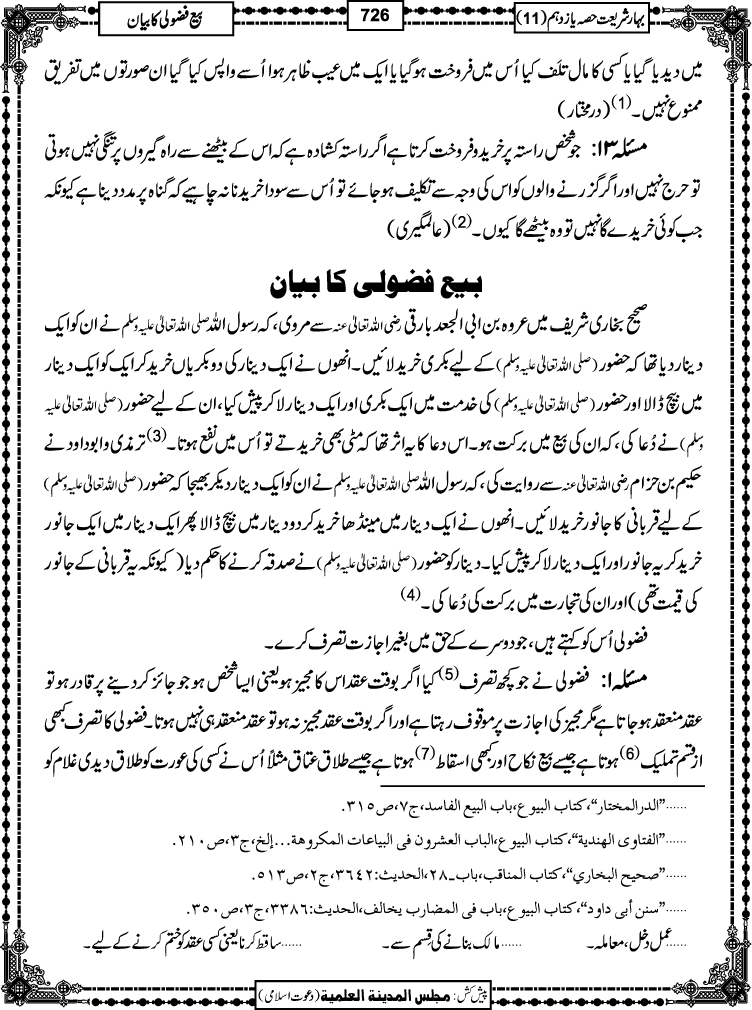 بہارِ شریعت حصہ یازدہم (11)
726
بیع فضولی کا بیان
میں دیدیا گیا یا کسی کا مال تلف کیا اُس میں فروخت ہوگیا یا ایک میں عیب ظاہر ہوا اُسے واپس کیا گیا ان صورتوں میں تفریق
ممنوع نہیں۔(1) (درمختار)
مسئلہ ۱۳: جو شخص راستہ پر خرید و فروخت کرتا ہے اگر راستہ کشادہ ہے کہ اس کے بیٹھنے سے راہ گیروں پر تنگی نہیں ہوتی
تو حرج نہیں اور اگر گزرنے والوں کو اس کی وجہ سے تکلیف ہوجائے تو اُس سے سودا خریدنا نہ چاہیے کہ گناہ پر مدد دینا ہے کیونکہ
جب کوئی خریدے گا نہیں تو وہ بیٹھے گا کیوں۔(2) (عالمگیری)
بیع فضولی کا بیان
صحیح بخاری شریف میں عروہ بن ابی الجعد بارقی رضی اللہ تعالیٰ عنہ سے مروی، کہ رسول اللہ صلی اللہ تعالیٰ علیہ وسلم نے ان کو ایک
دینار دیا تھا کہ حضور (صلی اللہ تعالیٰ علیہ وسلم) کے لیے بکری خرید لائیں۔ انھوں نے ایک دینار کی دو بکریاں خرید کر ایک کو ایک دینار
میں بیچ ڈالا اور حضور (صلی اللہ تعالیٰ علیہ وسلم) کی خدمت میں ایک بکری اور ایک دینار لا کر پیش کیا، ان کے لیے حضور (صلی اللہ تعالیٰ علیہ
وسلم) نے دُعا کی، کہ ان کی بیع میں برکت ہو۔ اس دعا کا یہ اثر تھا کہ مٹی بھی خریدتے تو اُس میں نفع ہوتا۔(3) ترمذی و ابو داود نے
حکیم بن حزام رضی اللہ تعالیٰ عنہ سے روایت کی، کہ رسول اللہ صلی اللہ تعالیٰ علیہ وسلم نے ان کو ایک دینار دیکر بھیجا کہ حضور (صلی اللہ تعالیٰ علیہ وسلم)
کے لیے قربانی کا جانور خرید لائیں۔ انھوں نے ایک دینار میں مینڈھا خرید کر دو دینار میں بیچ ڈالا پھر ایک دینار میں ایک جانور
خرید کر یہ جانور اور ایک دینار لا کر پیش کیا۔ دینار کو حضور (صلی اللہ تعالیٰ علیہ وسلم) نے صدقہ کرنے کا حکم دیا (کیونکہ یہ قربانی کے جانور
کی قیمت تھی) اور ان کی تجارت میں برکت کی دُعا کی۔(4)
فضولی اُس کو کہتے ہیں، جو دوسرے کے حق میں بغیر اجازت تصرف کرے۔
مسئلہ ۱: فضولی نے جو کچھ تصرف(5) کیا اگر بوقت عقد اس کا مجیز ہو یعنی ایسا شخص ہو جو جائز کردینے پر قادر ہو تو
عقد منعقد ہوجاتا ہے مگر مجیز کی اجازت پر موقوف رہتا ہے اور اگر بوقت عقد مجیز نہ ہو تو عقد منعقد ہی نہیں ہوتا۔ فضولی کا تصرف کبھی
از قسم تملیک(6) ہوتا ہے جیسے بیع نکاح اور کبھی اسقاط(7) ہوتا ہے جیسے طلاق عتاق مثلاً اُس نے کسی کی عورت کو طلاق دیدی غلام کو
......"الدرالمختار"،کتاب البیوع،باب البیع الفاسد،ج۷،ص۳۱۵.
......"الفتاوی الھندیة"،کتاب البیوع،الباب العشرون فی البیاعات المکروھة...إلخ،ج۳،ص۲۱۰.
......"صحیح البخاري"،کتاب المناقب،باب۔۲۸،الحدیث:۳۶۴۲،ج۲،ص۵۱۳.
......"سنن أبی داود"،کتاب البیوع،باب فی المضارب یخالف،الحدیث:۳۳۸۶،ج۳،ص۳۵۰.
......عمل دخل،معاملہ۔ ......مالک بنانے کی قِسم سے۔ ......ساقط کرنا یعنی کسی عقد کو ختم کرنے کے لیے۔
پیش کش: مجلس المدینة العلمیة (دعوت اسلامی)